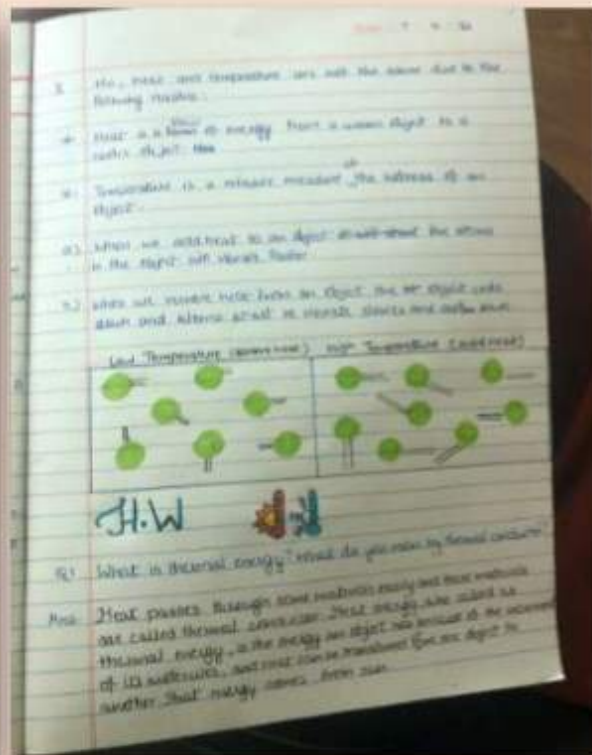 No, heat and temperature are not the same due to the
following reasons:
Heat is a flow of energy from a warm object to a
object
Temperature is a measure of the hotness of an
object.
When we add heat to an object the atoms
in the object will vibrate faster
When we remove heat from an object the object cools
down and atoms start to vibrate slower and down
Low Temperature (remove heat) High Temperature (add heat)
H.W
What is thermal energy? What do you mean by thermal conductor?
Heat passes through some materials easily and these materials
are called thermal conductor. Heat energy, also called as
thermal energy, is the energy an object has because of the movement
of its molecules, and heat can be transferred from one object to
another. Heat energy comes from sun